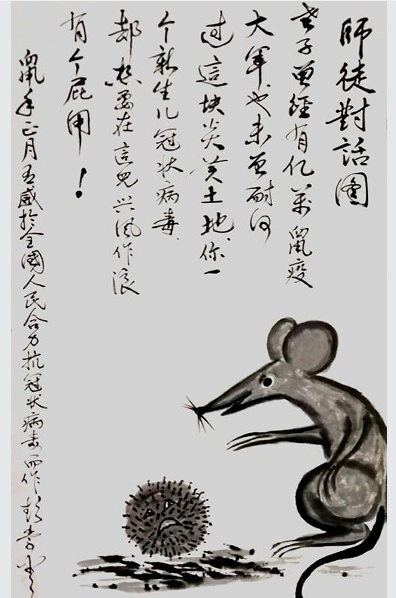 師徒對話圖
老子曾經有亿萬鼠疫
大軍也未曾耐何
过這块炎黄土地，你一
个新生儿冠状病毒，
都想要在這兒兴風作浪
有个屁用！
鼠年正月有感於全國人民合力抗冠状病毒而作